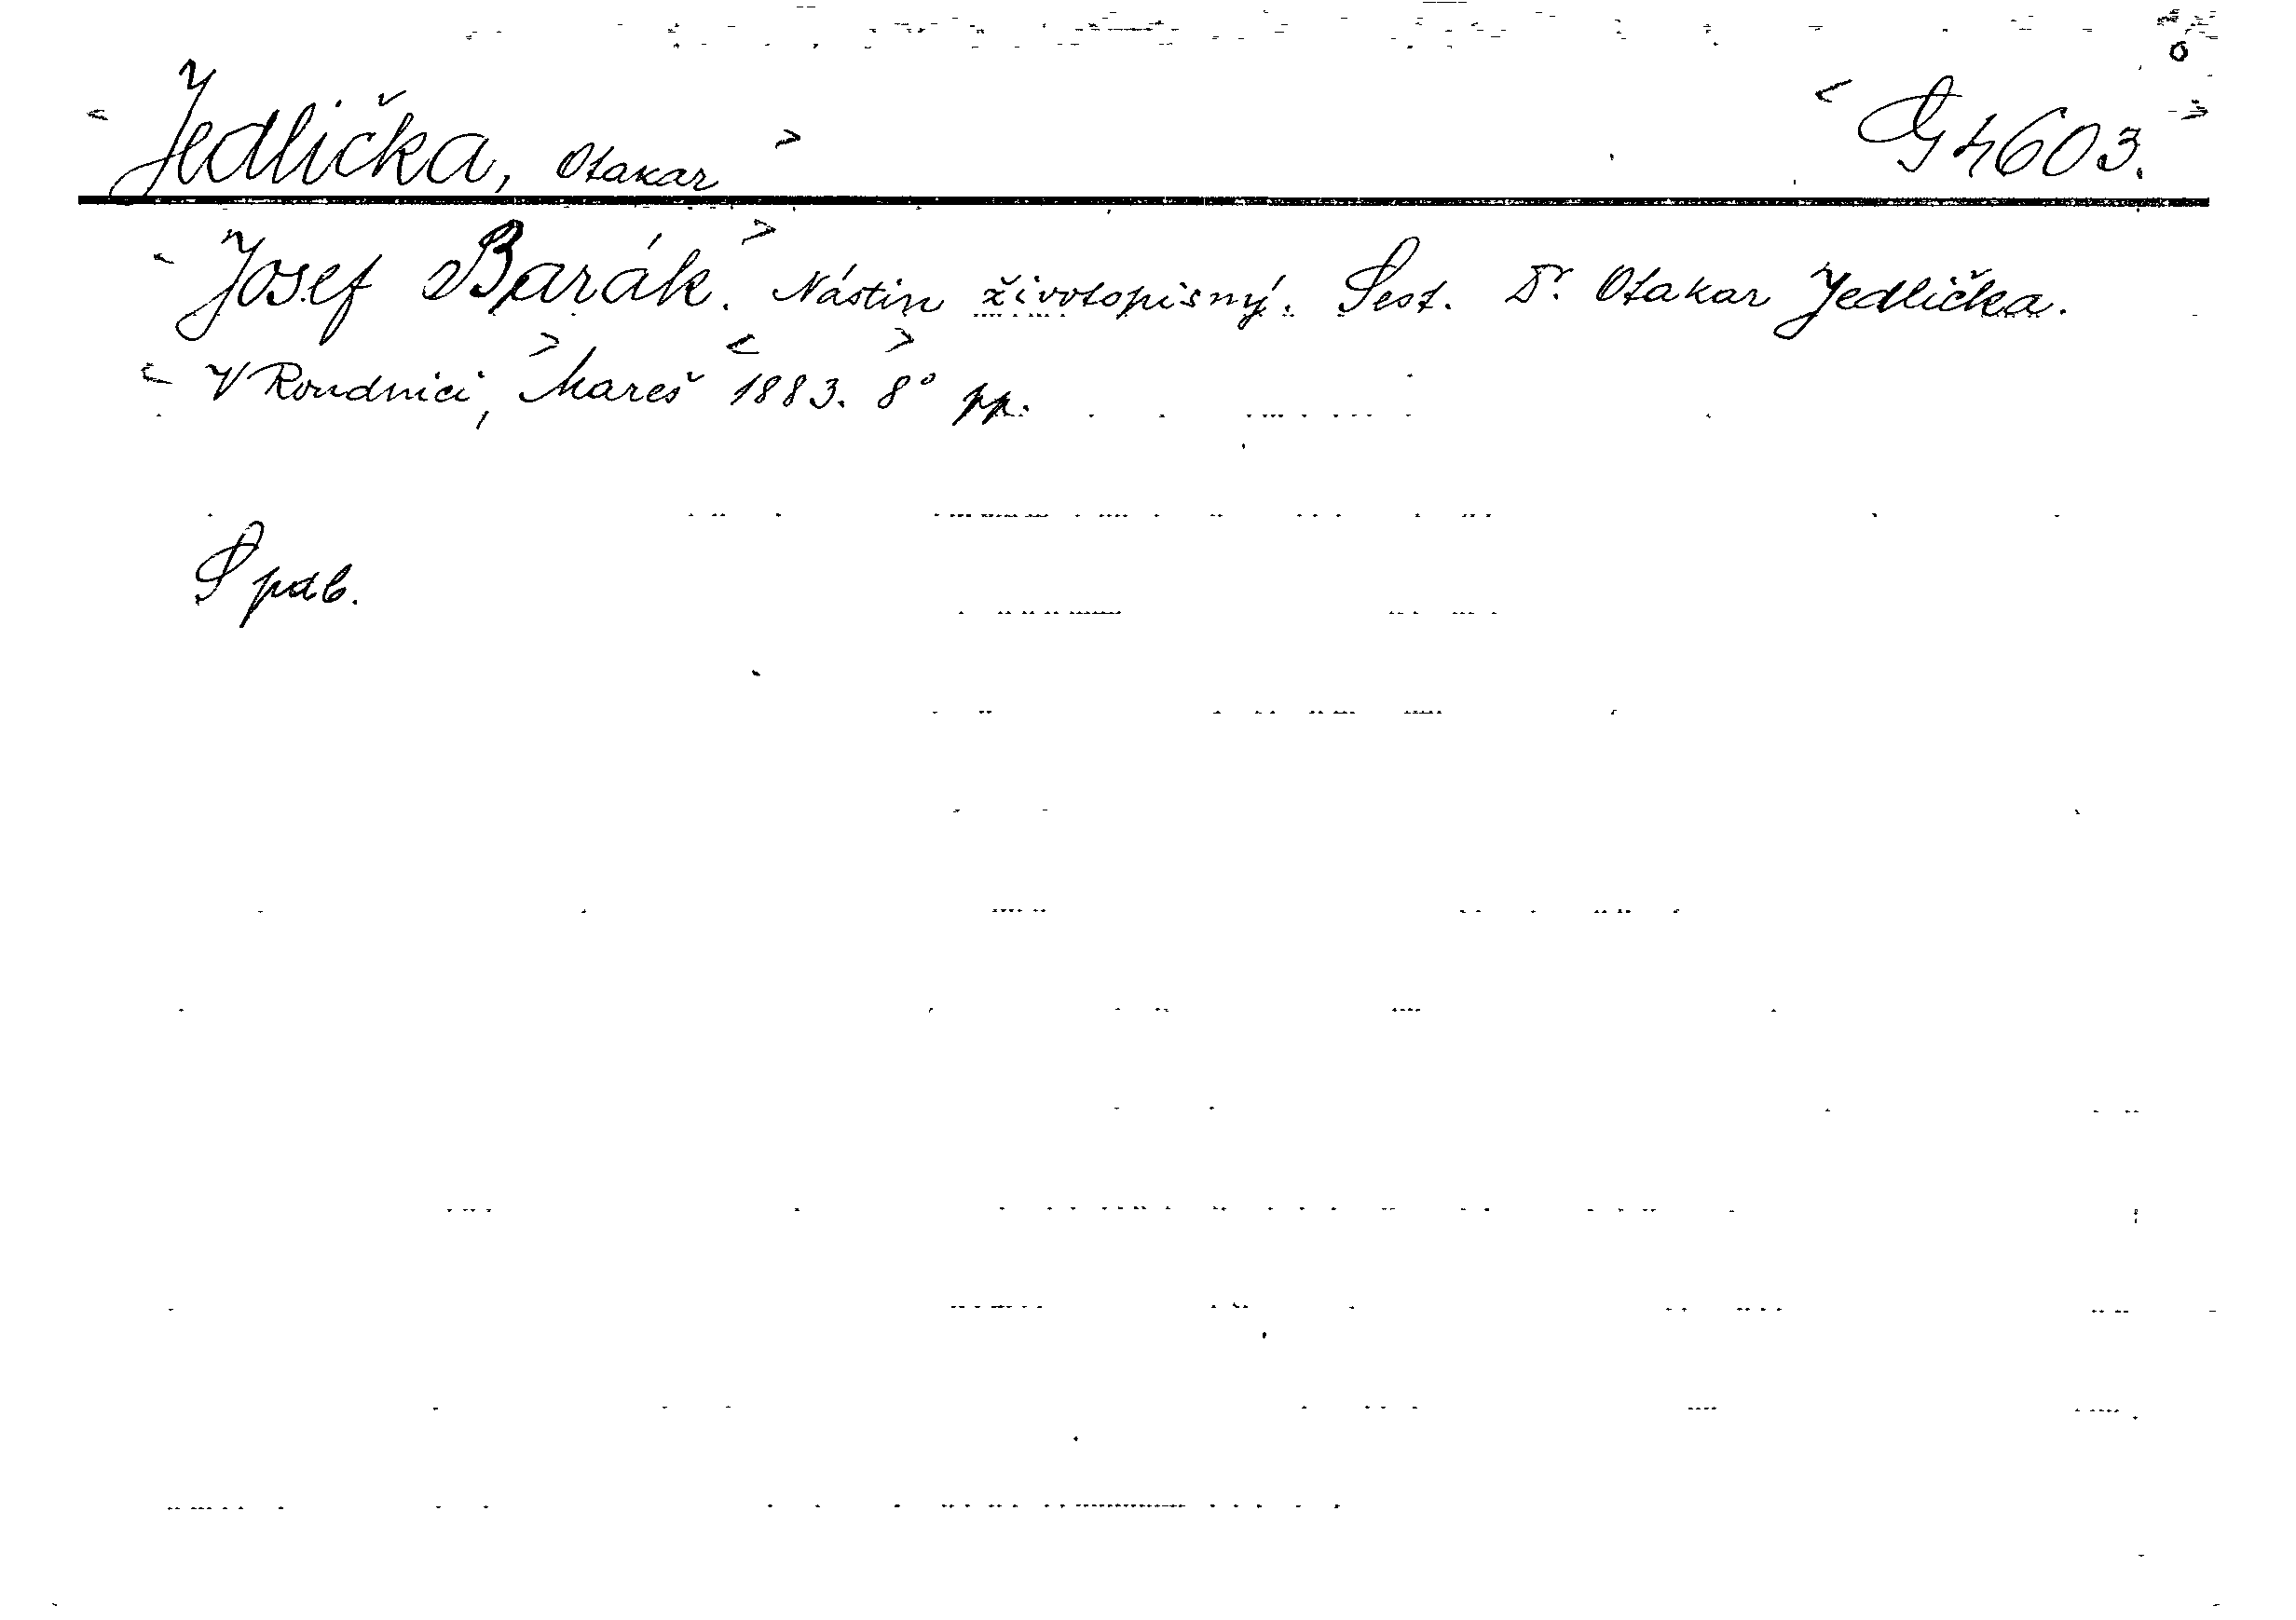 < Jedlička, Otakar > < G 4603. >
< Josef Barák. > Nástin životopisný. Sest. Dr. Otakar Jedlička.
< V Roudnici, > Mareš < 1883. 8° > pp.
S pdb.